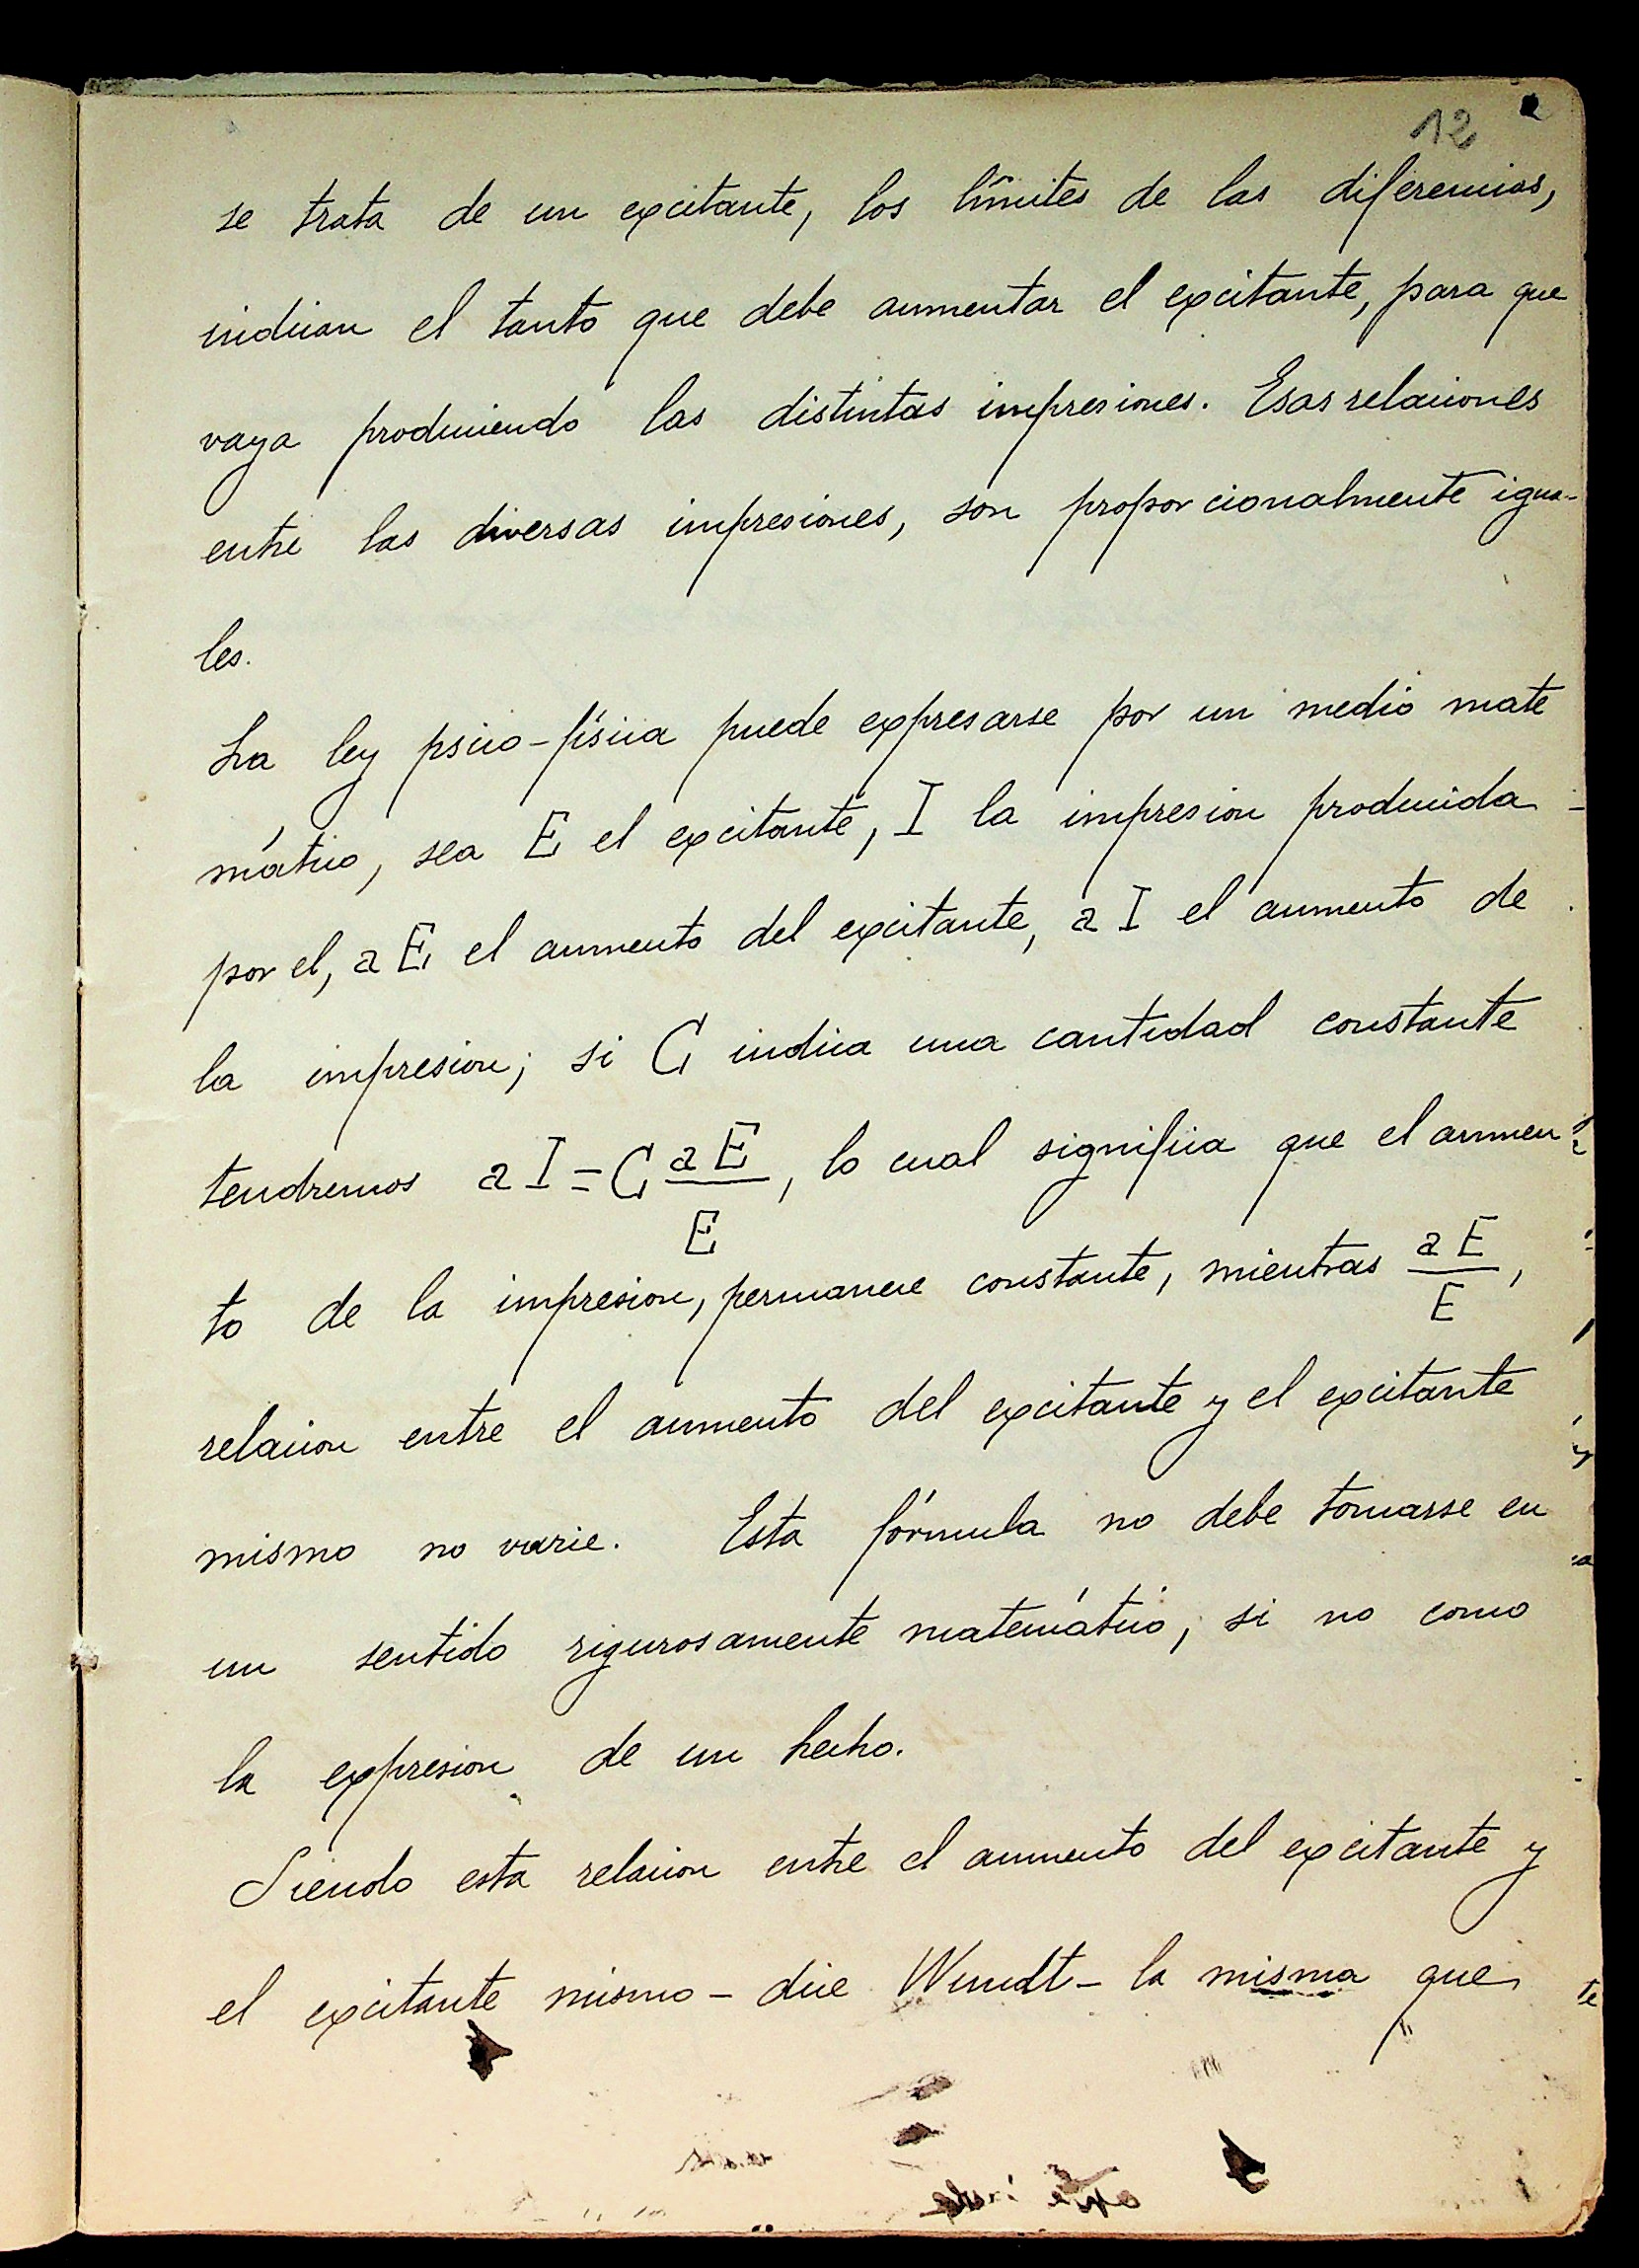 12
se trata de un excitante, los límites de las diferencias,
indican el tanto que debe aumentar el excitante, para que
vaya produciendo las distintas impresiones. Esas relaciones
entre las diversas impresiones, son proporcionalmente igua-
les.
La ley psico-física puede expresarse por un medio mate
mático, sea E el excitante, I la impresion producida
por el, a E el aumento del excitante, a I el aumento de
la impresion; si C indica una cantidad constante
tendremos a I = C a E / E, lo cual significa que el aumen
to de la impresion, permanece constante, mientras a E / E,
relacion entre el aumento del excitante y el excitante
mismo no varie. Esta fórmula no debe tomarse en
un sentido rigurosamente matemático, si no como
la expresion de un hecho.
Siendo esta relacion entre el aumento del excitante y
el excitante mismo - dice Wundt - la misma que